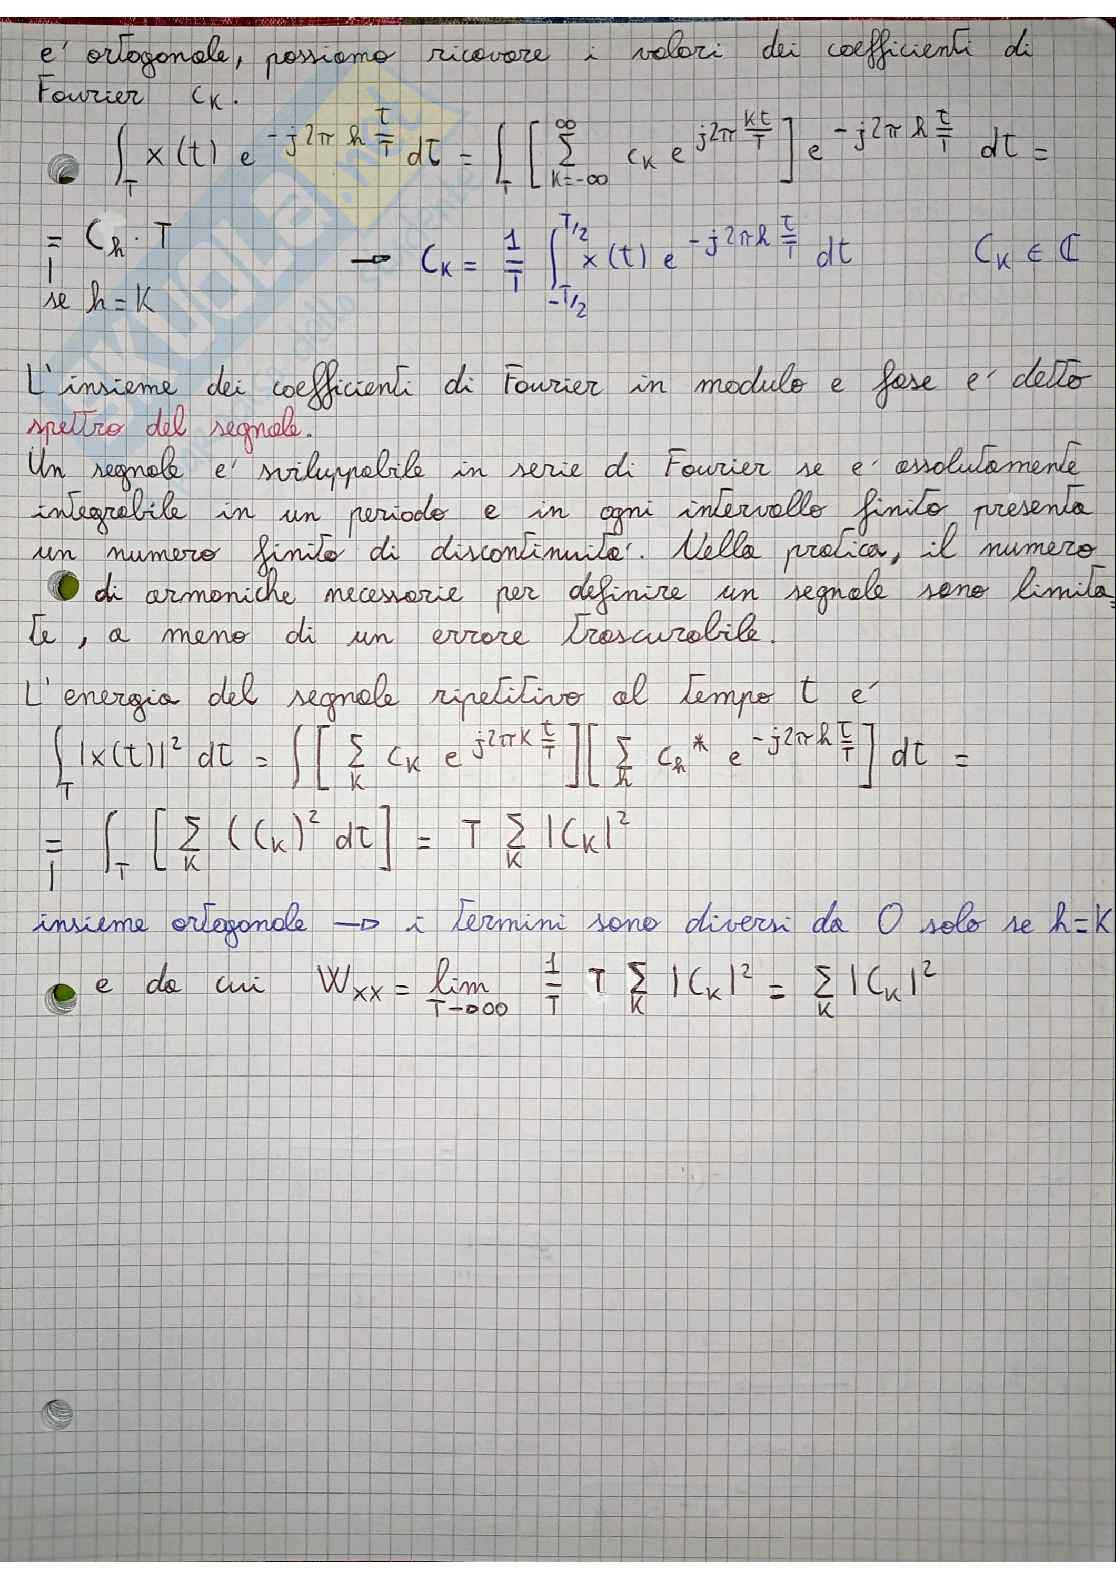 e' ortogonale, possiamo ricavare i valori dei coefficienti di
Fourier cK.
∫_T x(t) e^{-j2π h t/T} dt = ∫_T [ Σ_{K=-∞}^{∞} cK e^{j2π Kt/T} ] e^{-j2π h t/T} dt =
= Ch · T → CK = 1/T ∫_{-T/2}^{T/2} x(t) e^{-j2πh t/T} dt CK ∈ ℂ
se h = K
L'insieme dei coefficienti di Fourier in modulo e fase e' detto
spettro del segnale.
Un segnale e' sviluppabile in serie di Fourier se e' assolutamente
integrabile in un periodo e in ogni intervallo finito presenta
un numero finito di discontinuita'. Nella pratica, il numero
di armoniche necessarie per definire un segnale sono limita=
te, a meno di un errore trascurabile.
L'energia del segnale ripetitivo al tempo t e'
∫_T |x(t)|² dt = ∫ [ Σ_K cK e^{j2πK t/T} ] [ Σ_h ch* e^{-j2πh t/T} ] dt =
= ∫_T [ Σ_K (CK)² dt ] = T Σ_K |CK|²
insieme ortogonale → i termini sono diversi da 0 solo se h=K
e da cui Wxx = lim_{T→∞} 1/T T Σ_K |CK|² = Σ_K |CK|²
SKUOLA.net